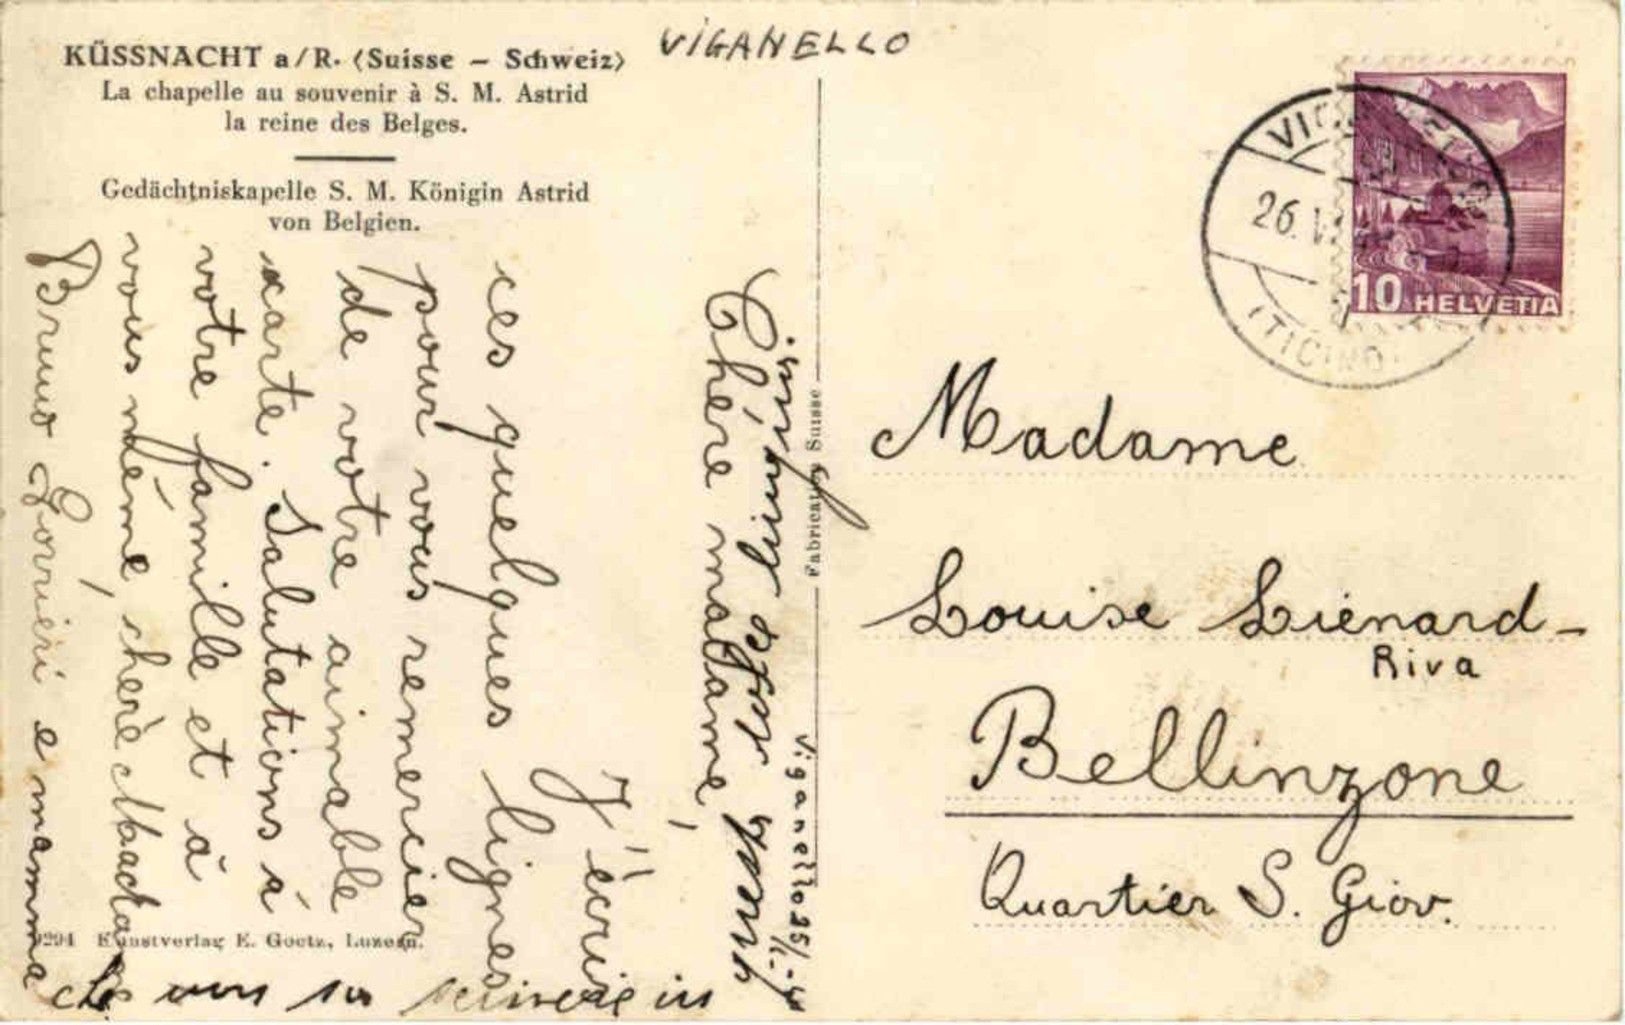 KÜSSNACHT a/R. (Suisse – Schweiz)
La chapelle au souvenir à S. M. Astrid
la reine des Belges.
Gedächtniskapelle S. M. Königin Astrid
von Belgien.
VIGANELLO
26. V
(TICINO)
10 HELVETIA
Viganello 25
Chère madame,
J'écris
ces quelques lignes
pour vous remercier
de votre aimable
carte. Salutations à
votre famille et à
vous même, chère Mada
Bruno e mamma
Fabrication Suisse
9294 Kunstverlag E. Goetz, Luzern.
Madame
Louise Liénard-
Riva
Bellinzone
Quartier S. Giov.